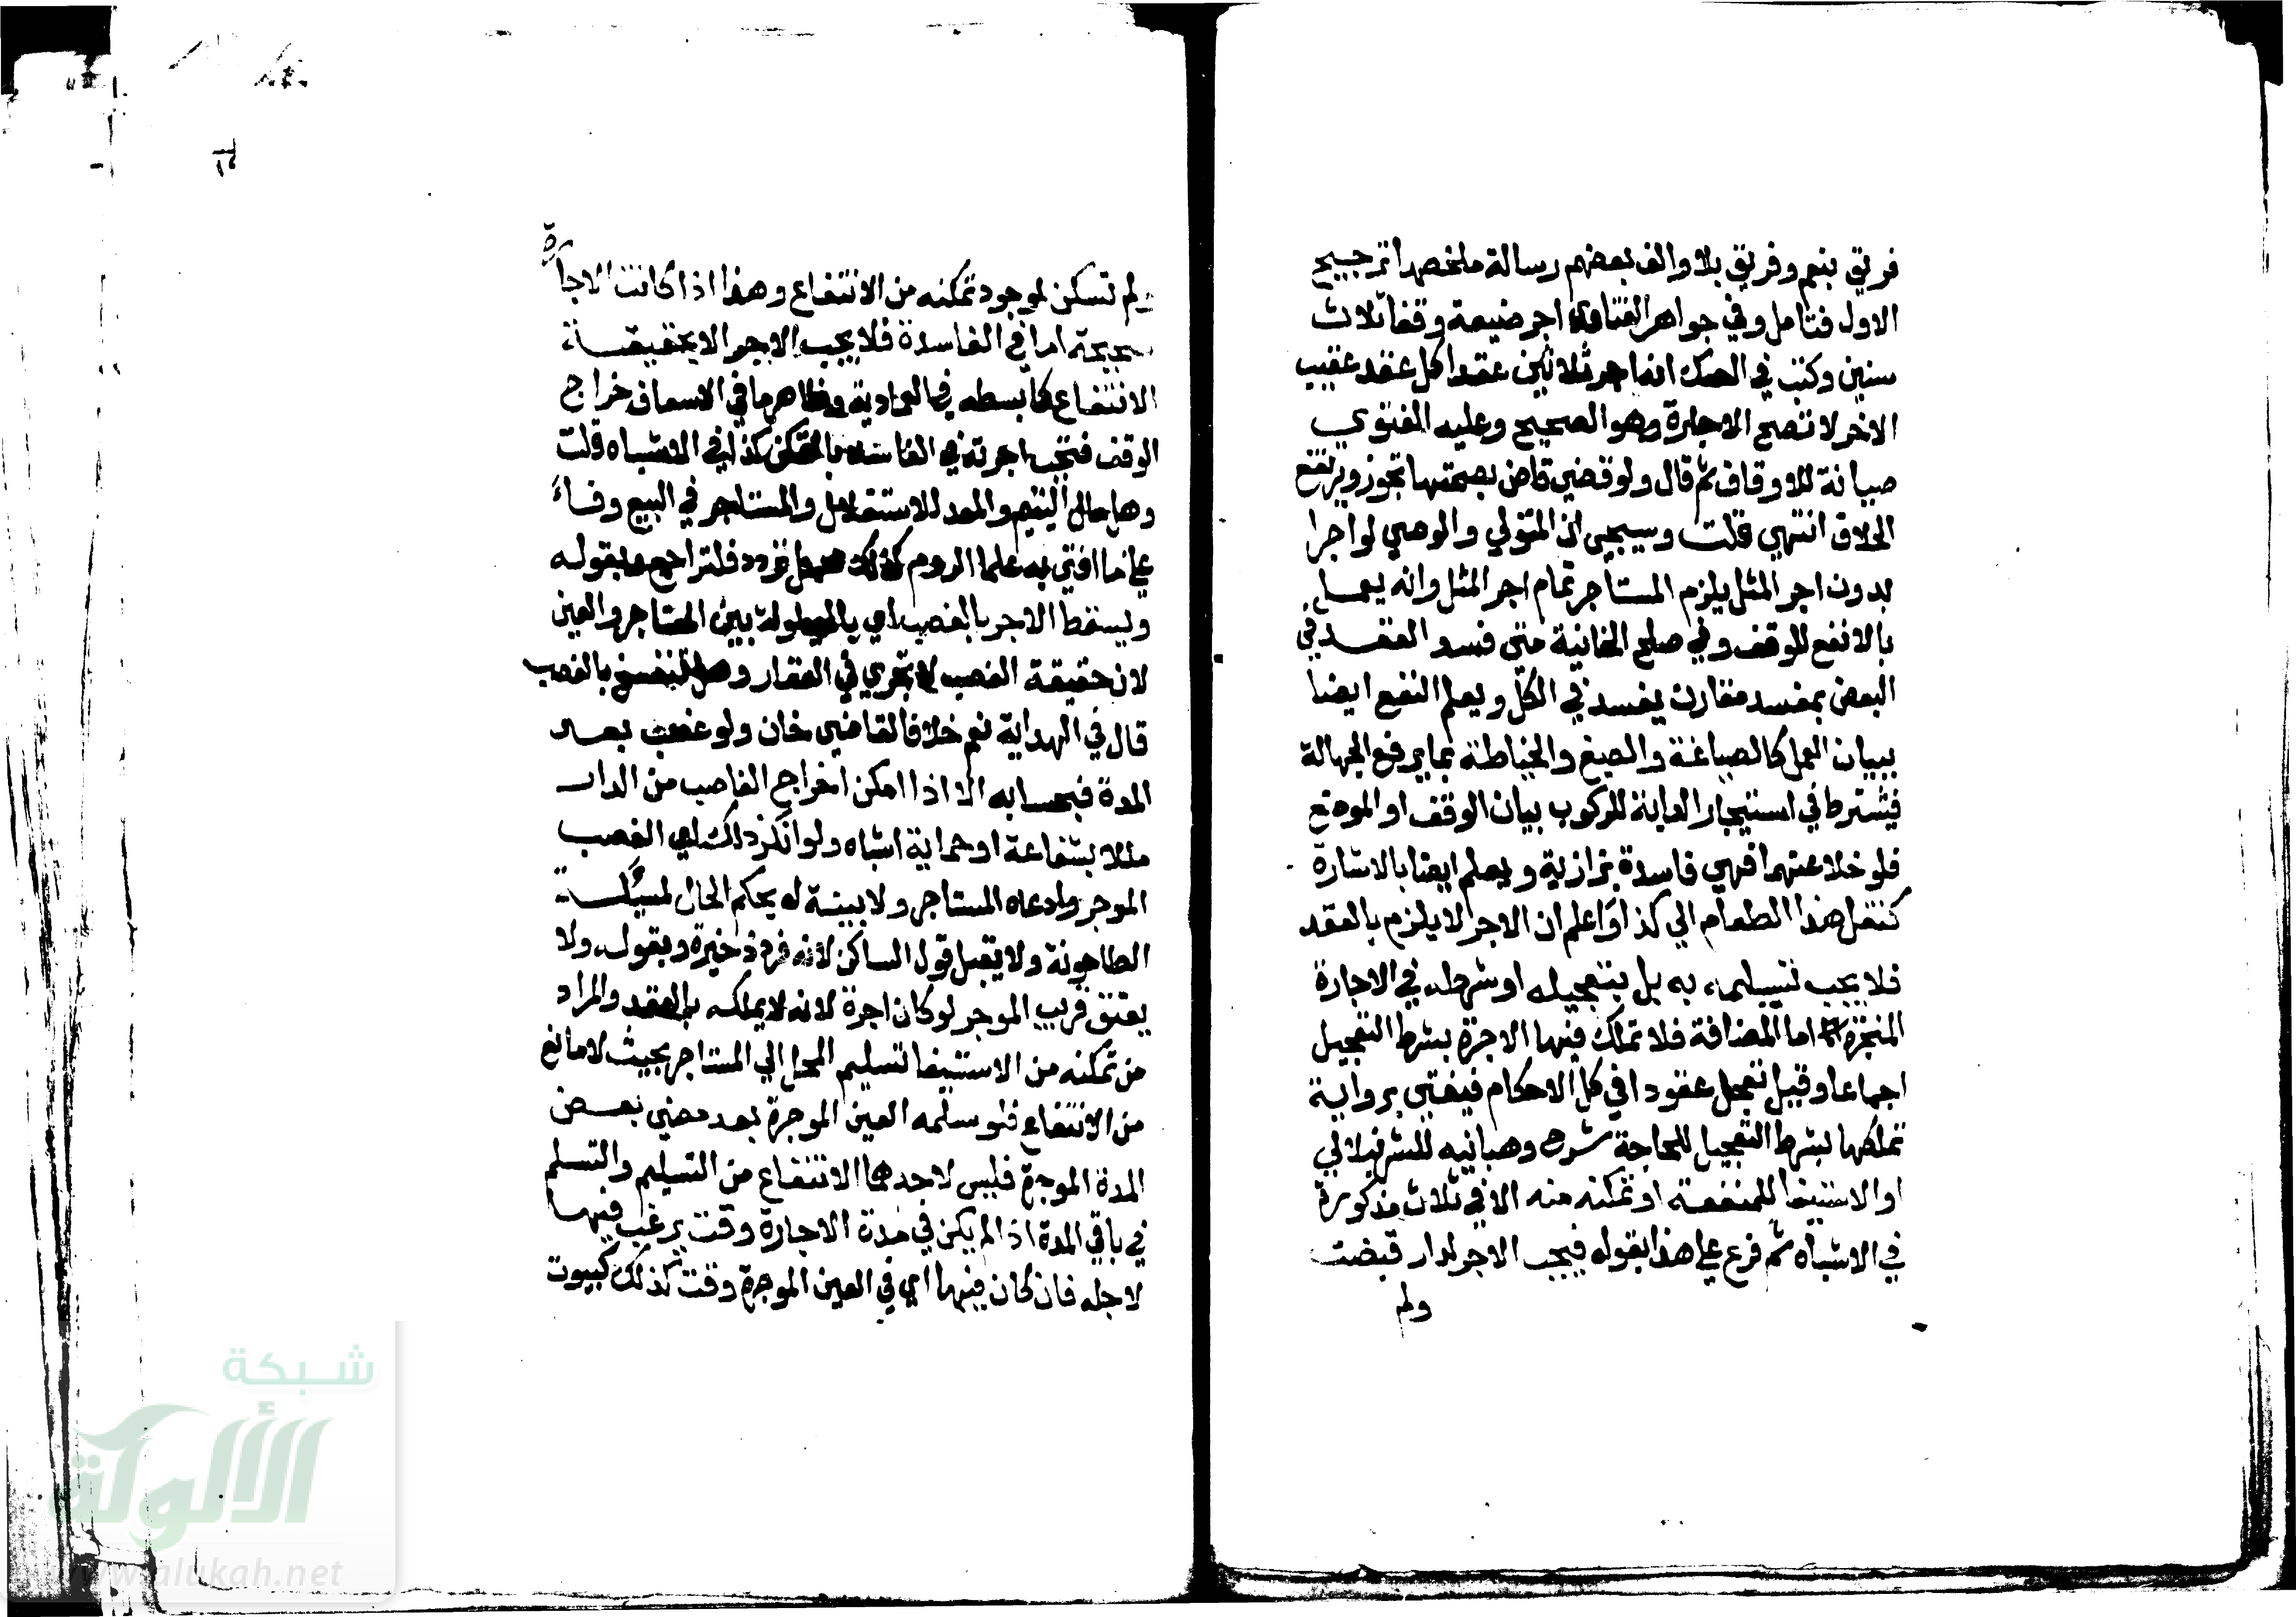 فريق بنعم وفريق بلا والف بعضهم رسالة ملخصها ترجيح
الاول فتامل وفي جواهر الفتاوى اجر ضيعة وقفا ثلاث
سنين وكتب في الصك انه اجر ثلاثين عقدا كل عقد عقيب
الاخر لا تصح الاجارة وهو الصحيح وعليه الفتوي
صيانة للاوقاف ثم قال ولو قضي قاض بصحتها تجوز ويرتفع
الخلاف انتهي قلت وسيجي ان المتولي والوصي لو اجرا
بدون اجر المثل يلزم المستاجر تمام اجر المثل وانه يعمل
بالانفع للوقف وفي صلح الخانية متى فسد العقد في
البعض بمفسد مقارن يفسد في الكل ويعلم النفع ايضا
ببيان العمل كالصياغة والصبغ والخياطة بما يرفع الجهالة
فيشترط في استيجار الدابة للركوب بيان الوقف او الموضع
فلو خلا عنهما فهي فاسدة بزازية ويعلم ايضا بالاشارة
كنقل هذا الطعام الي كذا واعلم ان الاجر لا يلزم بالعقد
فلا يجب تسليمه به بل بتعجيله او شرطه في الاجارة
المنجزة اما المضافة فلا تملك فيها الاجرة بشرط التعجيل
اجماعا وقيل تجعل عقودا في كل الاحكام فيفتي برواية
تملكها بشرط التعجيل للحاجة شرح وهبانيه للشرنبلالي
او الاستيفا للمنفعة او تمكنه منه الا في ثلاث مذكورة
في الاشباه ثم فرع علي هذا بقوله فيجب الاجر لدار قبضت
ولم
ولم تسكن لوجود تمكنه من الانتفاع وهذا اذا كانت الاجارة
صحيحة اما في الفاسدة فلا يجب الاجر الا بحقيقة
الانتفاع كما بسطه في العمادية وظاهر ما في الاسعاف خراج
الوقف فتجب اجرته في الفاسدة بالتمكن كذا في الاشباه قلت
وهل مال اليتيم والمعد للاستغلال والمستاجر في البيع وفاء
علي ما افتي به علما الروم كذلك محل تردد فلتراجع وبقوله
ويسقط الاجر بالغصب اي بالحيلولة بين المستاجر والعين
لان حقيقة الغصب لا تجري في العقار وهل تنفسخ بالغصب
قال في الهداية نعم خلافا لقاضي خان ولو غصب بعد
المدة فبحسابه الا اذا امكن اخراج الغاصب من الدار
مثلا بشفاعة او حماية اشباه ولو انكر ذلك اي الغصب
الموجر وادعاه المستاجر ولا بينة له يحكم الحال لمسئلة
الطاحونة ولا يقبل قول الساكن لانه فرد ذخيرة وبقوله ولا
يعتق قريب الموجر لو كان اجرة لانه لا يملكه بالعقد والمراد
من تمكنه من الاستيفا تسليم المحل الي المستاجر بحيث لا مانع
من الانتفاع فلو سلمه العين الموجرة بعد مضي بعض
المدة الموجرة فليس لاحدهما الانتفاع من التسليم والتسلم
في باقي المدة اذا لم يكن في مدة الاجارة وقت يرغب فيها
لاجله فان كان فيها اي في العين الموجرة وقت كذلك كبيوت
شبكة
الألوكة
www.alukah.net